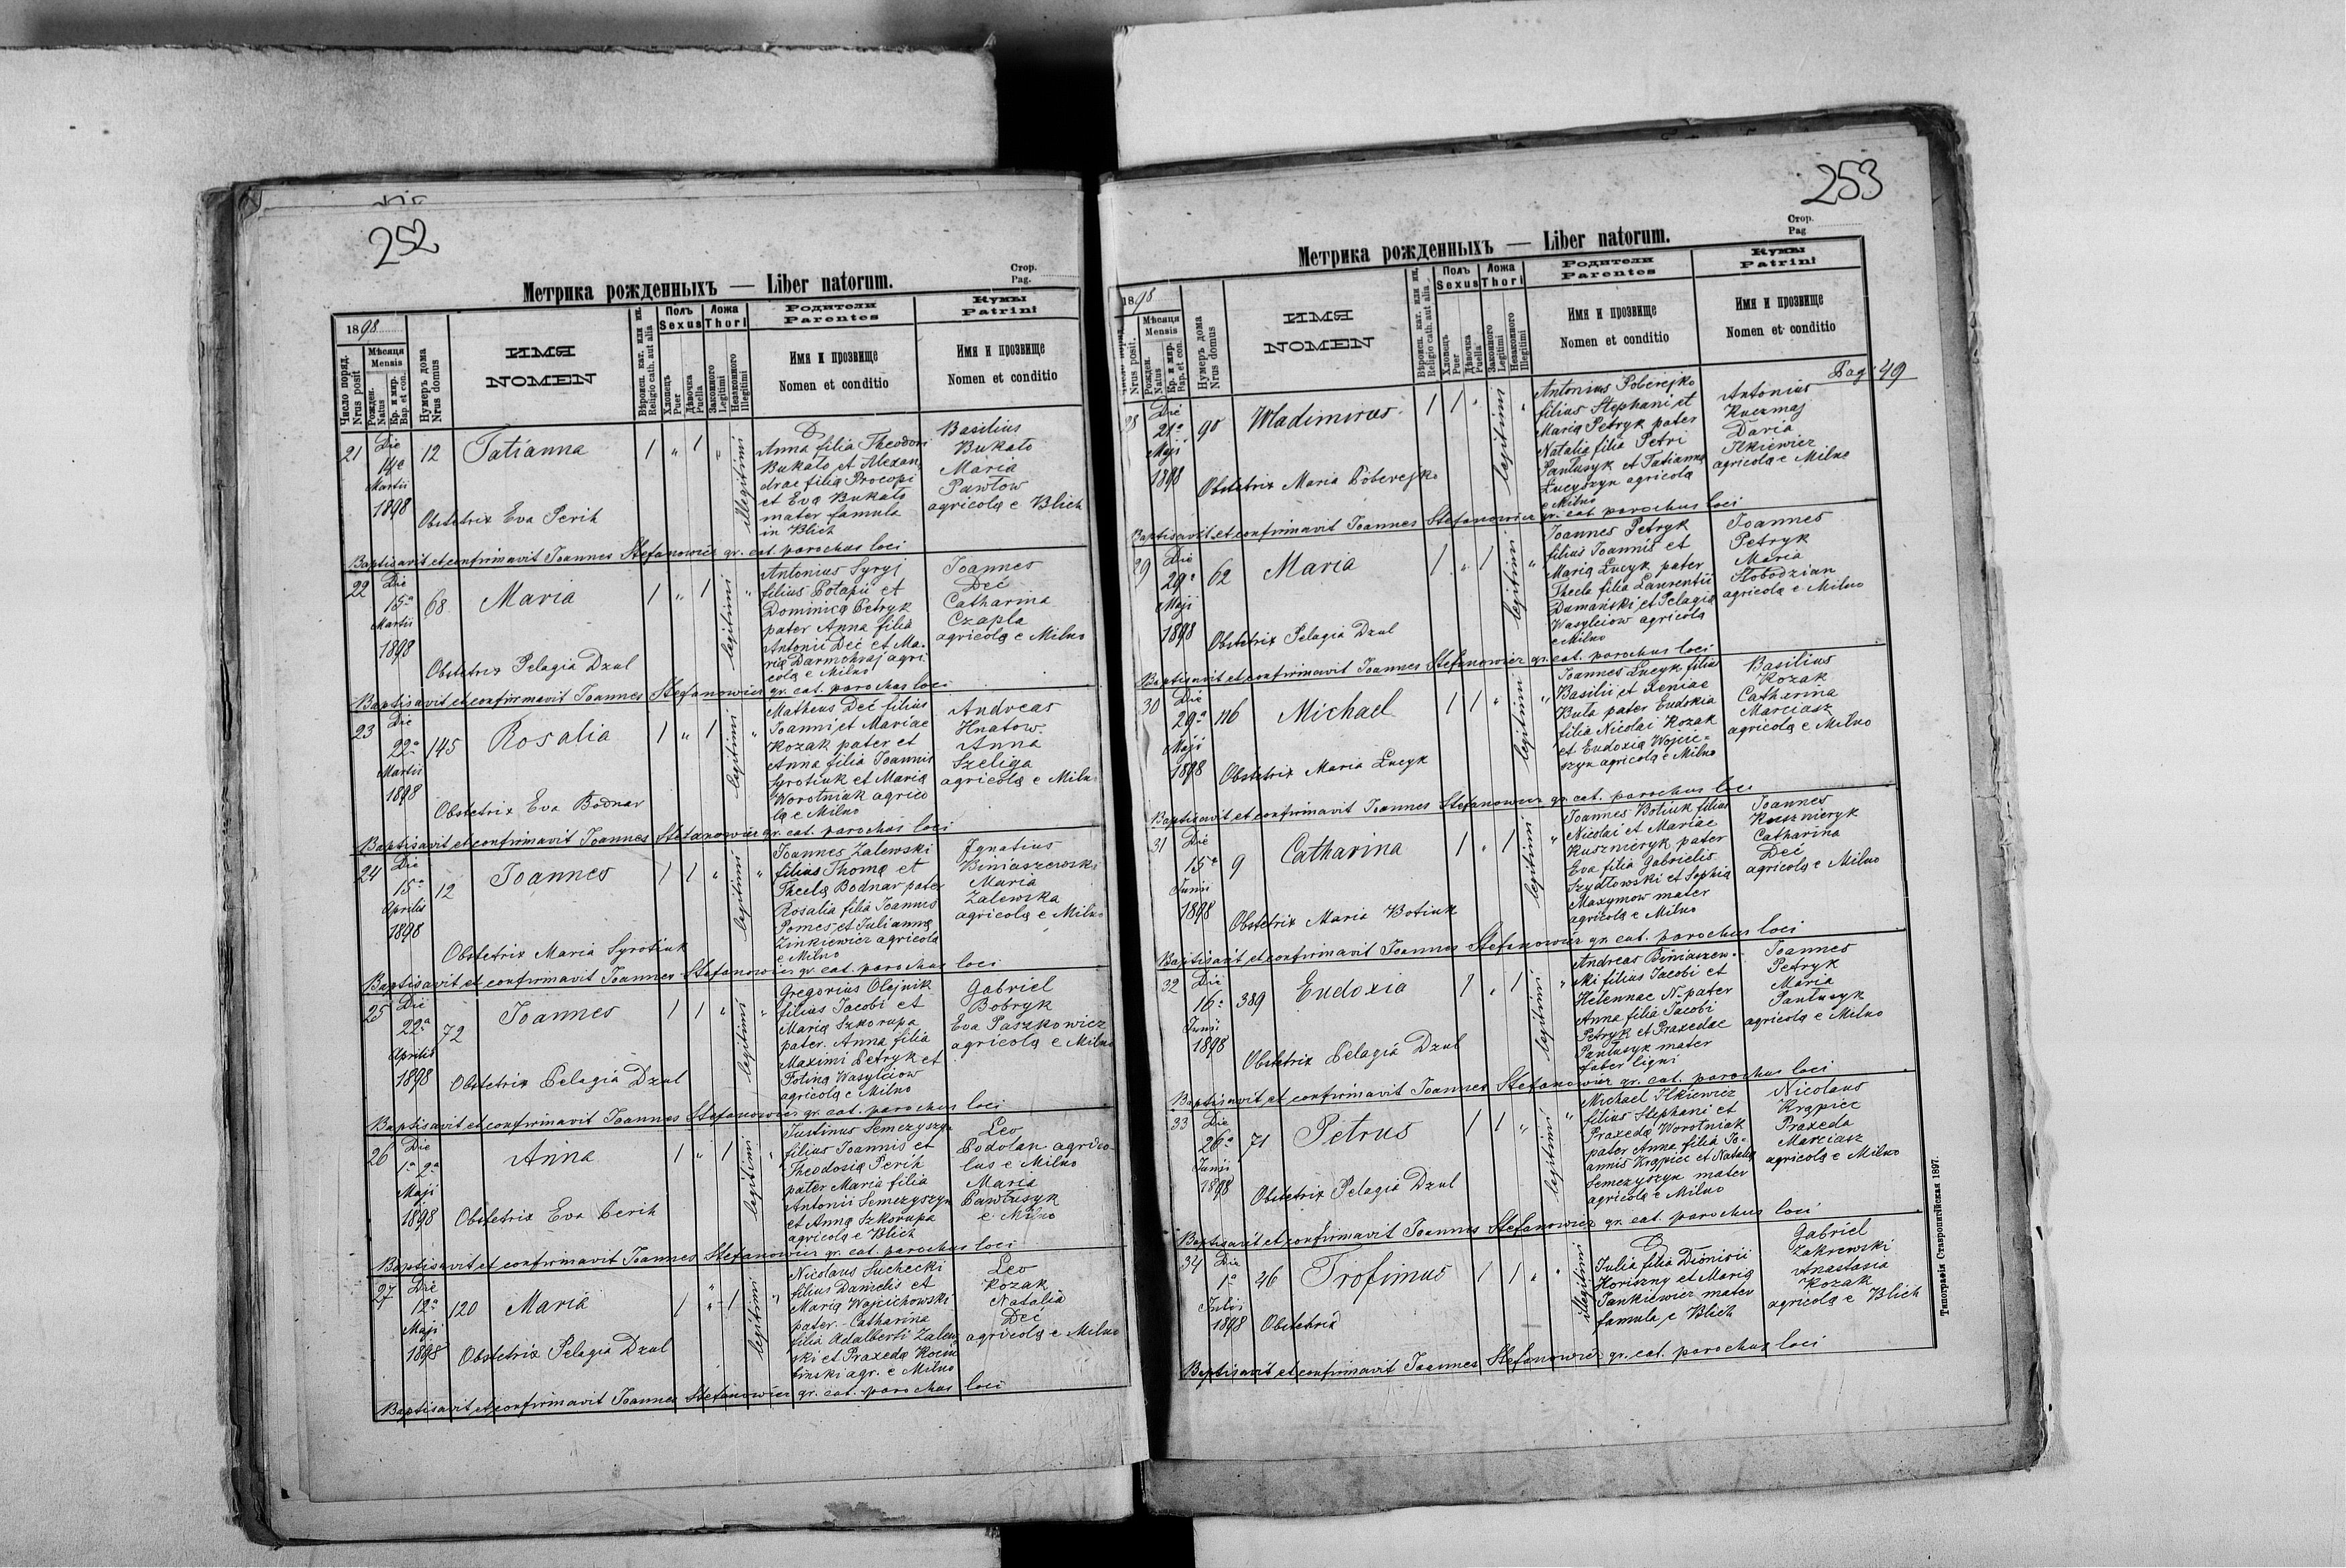 252
Метрика рожденныхъ — Liber natorum.
Стор.
Pag.
1898
Число поряд.
Nrus posit
Мѣсяця
Mensis
Рожден.
Natus
Кр. и мир.
Bap. et con.
Нумеръ дома
Nrus domus
ИМЯ
NOMEN
Вѣроисп. кат. или ин.
Religio cath. aut alia
Полъ
Sexus
Хлопець
Puer
Дѣвочка
Puella
Ложа
Thori
Законного
Legitimi
Незаконного
Illegitimi
Родители
Parentes
Имя и прозвище
Nomen et conditio
Кумы
Patrini
Имя и прозвище
Nomen et conditio
21 Die 14a Martii 1898 12 Tatianna 1 " 1 " illegitimi
Anna filia Theodori
Bukato et Alexan
drae filia Procopi
et Eva Bukato
mater famula
in Blich
Basilius
Bukato
Maria
Pawłow
agricola e Blich
Obstetrix Eva Perih
Baptisavit et confirmavit Joannes Stefanowicz gr. cat. parochus loci
22 Die 15a Martii 1898 68 Maria 1 " 1 legitimi "
Antonius Syryj
filius Potapii et
Dominica Petryk
pater Anna filia
Antonii Deć et Ma
ria Darmohraj agri
cola e Milno
Joannes
Deć
Catharina
Czapla
agricola e Milno
Obstetrix Pelagia Dzul
Baptisavit et confirmavit Joannes Stefanowicz gr. cat. parochus loci
23 Die 22a Martii 1898 145 Rosalia 1 " 1 legitimi "
Matheus Deć filius
Joanni et Mariae
Kozak pater et
Anna filia Joannis
Syrotiuk et Maria
Worotniak agrico
la e Milno
Andreas
Hnatow
Anna
Szeliga
agricola e Milno
Obstetrix Eva Bodnar
Baptisavit et confirmavit Joannes Stefanowicz gr. cat. parochus loci
24 Die 15a Aprilis 1898 12 Joannes 1 1 " legitimi "
Joannes Zalewski
filius Thoma et
Thecla Bodnar pater
Rosalia filia Joannis
Pomes et Julianna
Zinkiewicz agricola
e Milno
Ignatius
Biniaszewski
Maria
Zalewska
agricola e Milno
Obstetrix Maria Syrotiuk
Baptisavit et confirmavit Joannes Stefanowicz gr. cat. parochus loci
25 Die 22a Aprilis 1898 72 Joannes 1 1 " legitimi "
Gregorius Olejnik
filius Jacobi et
Maria Szkorupa
pater. Anna filia
Maximi Petryk et
Fotina Wasylciow
agricola e Milno
Gabriel
Bobryk
Eva Paszkowicz
agricola e Milno
Obstetrix Pelagia Dzul
Baptisavit et confirmavit Joannes Stefanowicz gr. cat. parochus loci
26 Die 1a 2a Maji 1898 Anna 1 " 1 legitimi "
Justinus Semczyszyn
filius Joannis et
Theodosia Perih
pater Maria filia
Antonii Semczyszyn
et Anna Szkorupa
agricola e Blich
Leo
Podolan agrico
lus e Milno
Maria
Pawłusyk
e Milno
Obstetrix Eva Perih
Baptisavit et confirmavit Joannes Stefanowicz gr. cat. parochus loci
27 Die 12a Maji 1898 120 Maria 1 " 1 legitimi "
Nicolaus Suchecki
filius Danielis et
Maria Wojcichowski
pater. - Catharina
filia Adalberti Zalew
ski et Praxeda
agr. e Milno
Leo
Kozak
Natalia
Deć
agricola e Milno
Obstetrix Pelagia Dzul
Baptisavit et confirmavit Joannes Stefanowicz gr. cat. parochus loci
253
Метрика рожденныхъ — Liber natorum.
Стор.
Pag
Pag: 49
1898
Nrus posit.
Мѣсяця
Mensis
Рожден.
Natus
Кр. и мир.
Bap. et con.
Нумеръ дома
Nrus domus
ИМЯ
NOMEN
Вѣроисп. кат. или ин.
Religio cath. aut alia
Полъ
Sexus
Хлопець
Puer
Дѣвочка
Puella
Ложа
Thori
Законного
Legitimi
Незаконного
Illegitimi
Родители
Parentes
Имя и прозвище
Nomen et conditio
Кумы
Patrini
Имя и прозвище
Nomen et conditio
28 Die 21a Maji 1898 90 Wladimirus 1 1 " legitimi "
Antonius Poberejko
filius Stephani et
Maria Petryk pater
Natalia filia Petri
Pantusyk et Tatianna
Lucyszyn agricola
e Milno
Antonius
Kuczmaj
Daria
Ilkiewicz
agricola e Milno
Obstetrix Maria Poberejko
Baptisavit et confirmavit Joannes Stefanowicz gr. cat. parochus loci
29 Die 29a Maji 1898 62 Maria 1 " 1 legitimi "
Joannes Petryk
filius Joannis et
Maria Łucyk pater
Thecla filia Laurentii
Domański et Pelagia
Wasylciow agricola
e Milno
Joannes
Petryk
Maria
Słobodzian
agricola e Milno
Obstetrix Pelagia Dzul
Baptisavit et confirmavit Joannes Stefanowicz gr. cat. parochus loci
30 Die 29a Maji 1898 116 Michael 1 1 " legitimi "
Joannes Łucyk filius
Basilii et Xeniae
Buta pater Eudokia
filia Nicolai Kozak
et Eudoxia Wojcic=
szyn agricola e Milno
Basilius
Kozak
Catharina
Marciasz
agricola e Milno
Obstetrix Maria Łucyk
Baptisavit et confirmavit Joannes Stefanowicz gr. cat. parochus loci
31 Die 15a Junii 1898 9 Catharina 1 " 1 legitimi "
Joannes Botiuk filius
Nicolai et Mariae
Kusznieryk pater
Eva filia Gabrielis
Szydłowski et Sophia
Maxymow mater
agricola e Milno
Joannes
Kusznieryk
Catharina
Deć
agricola e Milno
Obstetrix Maria Botiuk
Baptisavit et confirmavit Joannes Stefanowicz gr. cat. parochus loci
32 Die 16a Junii 1898 389 Eudoxia 1 " 1 legitimi "
Andreas Biniaszew-
ski filius Jacobi et
Helennae N. pater
Anna filia Jacobi
Petryk et Praxedae
Pantusyk mater
faber ligni
Joannes
Petryk
Maria
Pantusyk
agricola e Milno
Obstetrix Pelagia Dzul
Baptisavit et confirmavit Joannes Stefanowicz gr. cat. parochus loci
33 Die 26a Junii 1898 71 Petrus 1 1 " legitimi "
Michael Ilkiewicz
filius Stephani et
Praxeda Worotniak
pater Anna filia Jo-
annis Krąpiec et Natalia
Semczyszyn mater
agricola e Milno
Nicolaus
Krąpiec
Praxeda
Marciasz
agricola e Milno
Obstetrix Pelagia Dzul
Baptisavit et confirmavit Joannes Stefanowicz gr. cat. parochus loci
34 Die 1a Julii 1898 46 Trofimus 1 1 " " illegitimi
Julia filia Dionisii
Horiszny et Maria
Jankiewicz mater
famula e Blich
Gabriel
Zakrewski
Anastasia
Kozak
agricola e Blich
Obstetrix
Baptisavit et confirmavit Joannes Stefanowicz gr. cat. parochus loci
Типографія Ставропигійская 1897.